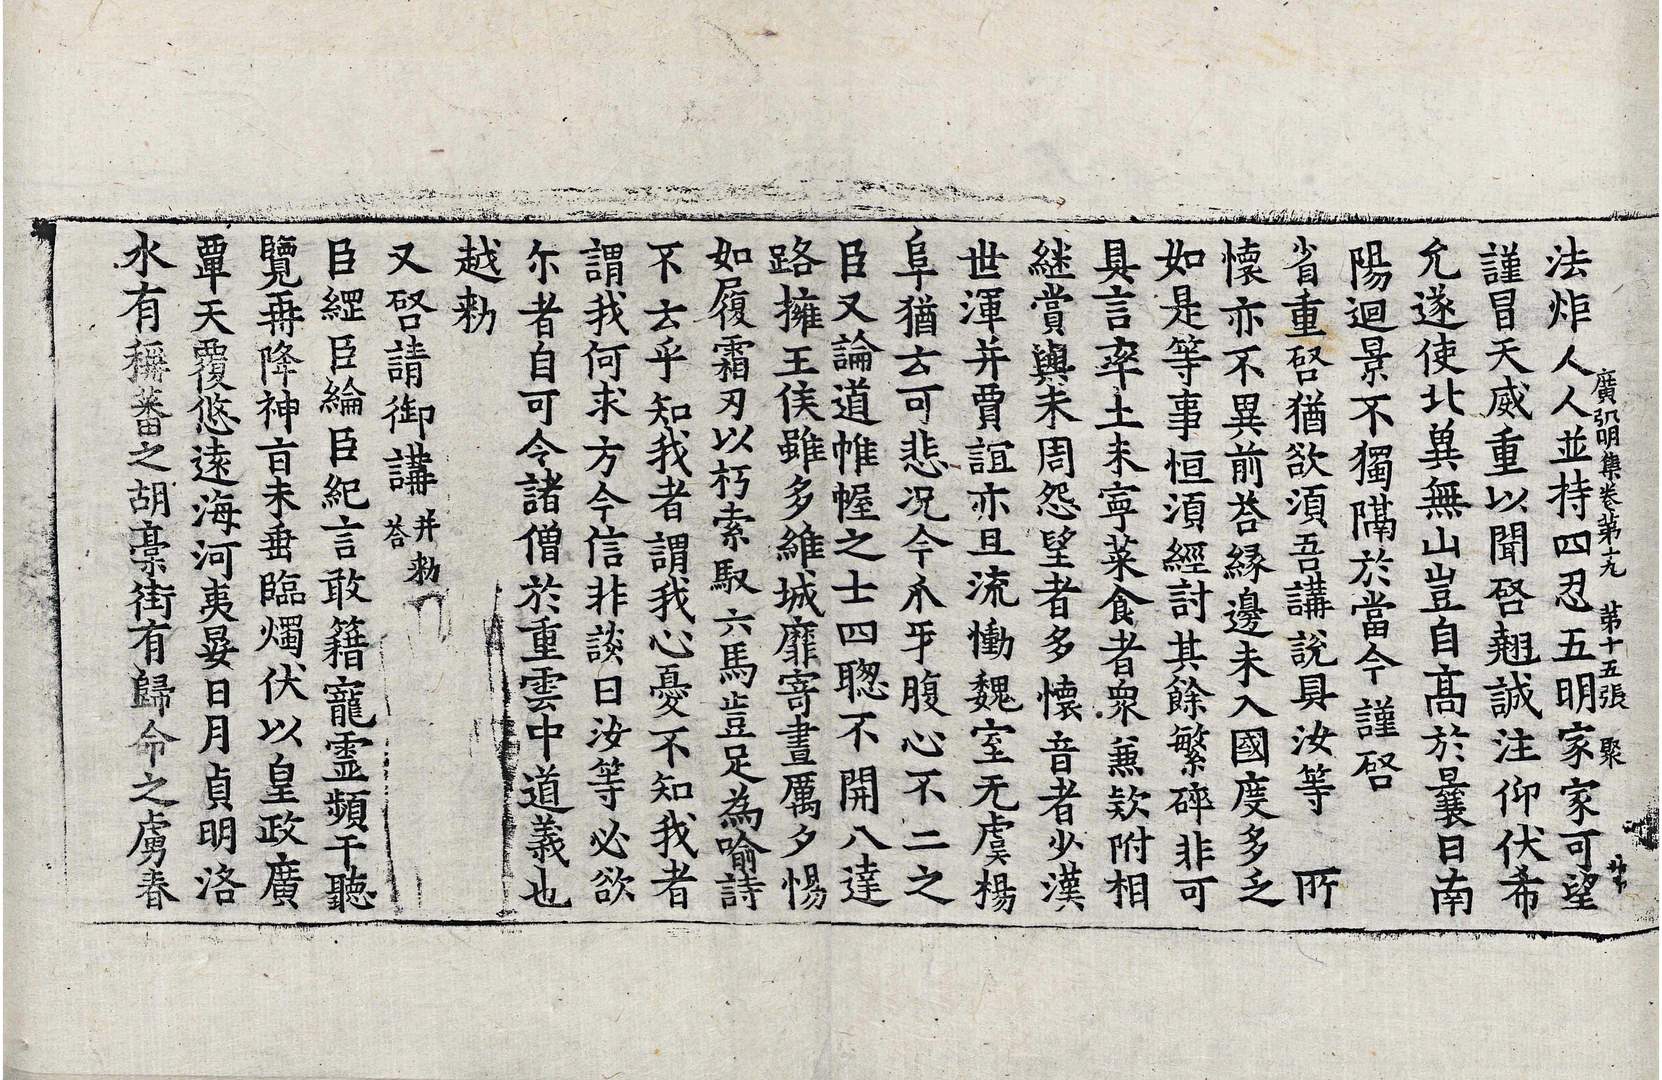 廣弘明集卷第十九　第十五張　聚
法炬人人並持四忍五明家家可望
謹冒天威重以聞啓翹誠注仰伏希
允遂使北兾無山豈自髙於曩日南
陽迴景不獨隔於當今謹啓
省重啓猶欲須吾講說具汝等所
懷亦不異前荅縁邊未入國度多乏
如是等事恒須經討其餘繁碎非可
具言率土未寧菜食者衆兼欵附相
継賞與未周怨望者多懷音者少漢
世渾并賈誼亦且流慟魏室无虞楊
阜猶云可悲况今未平腹心不二之
臣又論道帷幄之士四聦不開八達
路擁王侯雖多維城靡寄晝厲夕惕
如履霜刃以朽索馭六馬豈足為喻詩
不云乎知我者謂我心憂不知我者
謂我何求方今信非談日汝等必欲
尓者自可令諸僧於重雲中道義也
越勑
又啓請御講并勑荅
臣綱臣綸臣紀言敢籍寵靈頻干聽
覽再降神旨未垂臨燭伏以皇政廣
覃天覆悠遠海河夷晏日月貞明洛
水有稱蕃之胡藁街有歸命之虜春